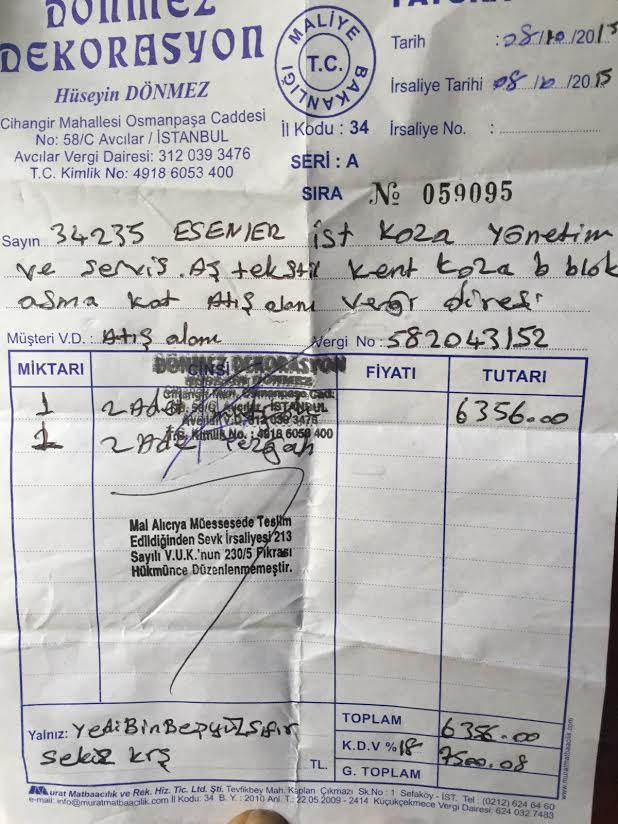 DÖNMEZ
DEKORASYON
Hüseyin DÖNMEZ
Cihangir Mahallesi Osmanpaşa Caddesi
No: 58/C Avcılar / İSTANBUL
Avcılar Vergi Dairesi: 312 039 3476
T.C. Kimlik No: 4918 6053 400
MALİYE BAKANLIĞI
T.C.
İl Kodu : 34
SERİ : A
SIRA № 059095
Tarih : 08/10/2015
İrsaliye Tarihi 08/ /2015
İrsaliye No. :
Sayın 34235 ESENLER ist koza yönetim
ve servis.Aş tekstil kent koza b blok
asma kat Atış alanı vergi diresi
Müşteri V.D. : Atış alanı Vergi No : 582043152
MİKTARI CİNSİ FİYATI TUTARI
DÖNMEZ DEKORASYON
HÜSEYİN DÖNMEZ
Cihangir Mah. Osmanpaşa Cad.
No: 58/C Avcılar / İSTANBUL
Avcılar V.D. 312 039 3476
T.C. Kimlik No. : 4918 6053 400
1 2 Adet 6356.00
1 2 Adet Tezgah
Mal Alıcıya Müessesede Teslim
Edildiğinden Sevk İrsaliyesi 213
Sayılı V.U.K.'nun 230/5 Fıkrası
Hükmünce Düzenlenmemeştir.
Yalnız: YediBinBeşyüzSıfır
Sekiz krş
TL.
TOPLAM 6356.00
K.D.V %18 7500.08
G. TOPLAM
Murat Matbaacılık ve Rek. Hiz. Tic. Ltd. Şti. Tevfikbey Mah. Kaplan Çıkmazı Sk.No : 1 Sefaköy - İST. Tel : (0212) 624 64 60
e-mail: info@muratmatbaacilik.com İl Kodu: 34 B. Y. : 2010 Anl. T.: 22.05.2009 - 2414 Küçükçekmece Vergi Dairesi: 624 032 7483
www.muratmatbaacilik.com